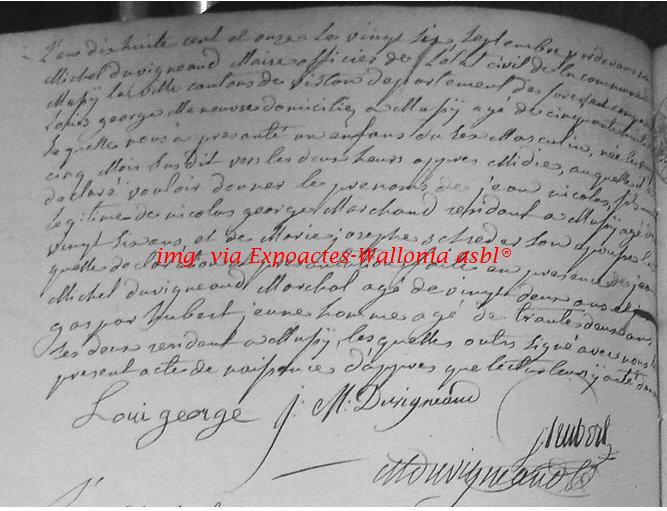 L'an dix huite cent et onze le vingt six septembre pardevant nous
Michel duvigneaud Maire officier de l'état civil de la commune de
Mussy la ville canton de virton departement des forest comparu
Louis george Maneuvre domicilié a Mussy agé de cinquante
lequelle nous à presanté un enfans du sex Masculin, née le vingt
cinq Mois susdit vers les deux heurs appres Midies, auquelle il
declaré vouloir donner les prenoms de jean nicolas, fils
legitime de nicolas george Marchand residant a Mussy agé de
vingt six ans, et de Marie josephe schreder son epouse le
quelle declaration et presentation faite en presence de jean
Michel duvigneaud Marchal agé de vingt deux ans et
gaspar hubert jeune homme agé de trante deux ans,
les deux residant a Mussy, lesquelles onts signé avec nous le
present acte de naissance d'appres que lecture leur y a été donné
Loui george j: M: Duvigneaud
j hubert
M duvigneaud
img via Expoactes-Wallonia asbl®